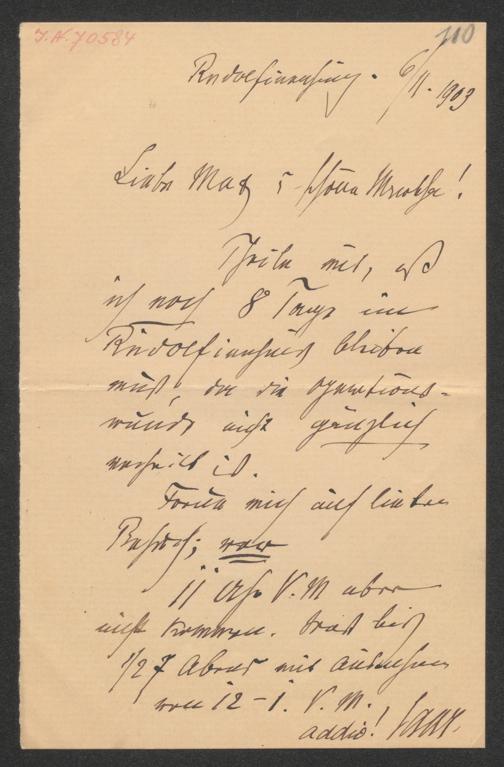 J.N. 70584
110
Rudolfinerhaus. 6/11. 1903
Liebe Mat u schöne Martha!
Theile mit, daß
ich noch 8 Tage im
Rudolfinerhaus bleiben
muß, da die Operations-
wunde nicht gänzlich
verheilt ist.
Freue mich auf lieben
Besuch; vor
11 Uhr V. M aber
nicht kommen. Erst bis
1/2 7 Abend mit Ausnahme
von 12 – 1. V. M.
addio! Saar.